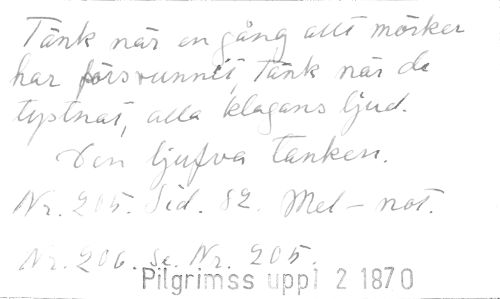 Tänk när en gång allt mörker
har försvunnit, Tänk när de
tystnat, alla klagans ljud.
Den ljufva tanken.
Nr. 205. Sid. 82. Mel-not.
Nr. 206. Se. Nr. 205.
Pilgrimss uppl 2 1870